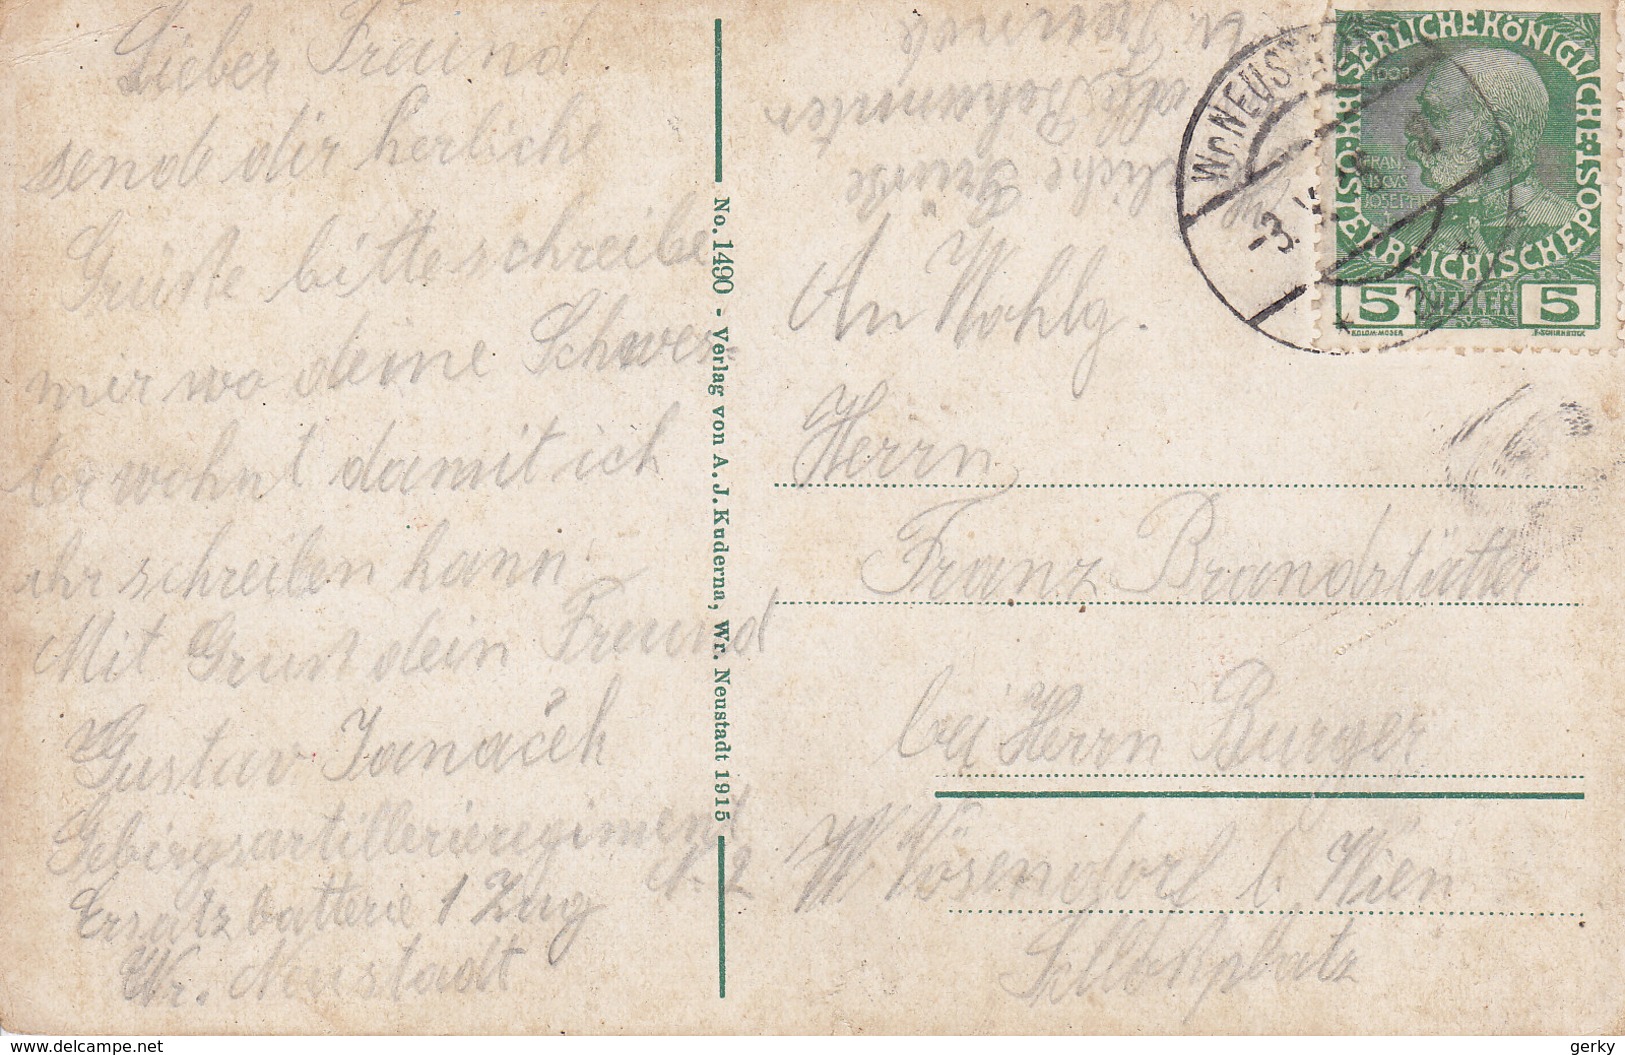 Lieber Freund
sende dir herliche
Grüße bitte schreibe
mir wo deine Schwes-
ter wohnt damit ich
ihr schreiben kann
Mit Gruss dein Freund
Gustav Janaček
Gebirgsartillerieregiment
N. 2
Ersatzbatterie 1 Zug
Wr. Neustadt
No. 1490 - Verlag von A. J. Kuderna, Wr. Neustadt 1915
liche Grüße
alle Bekannten
u. Freunde
Wr. NEUSTADT
-3. V.
* 2 *
KAISERLICHE KÖNIGLICHE ÖSTERREICHISCHE POST
1908
FRANCISCUS JOSEPH
5 HELLER 5
KOLOM·MOSER
F·SCHIRNBÖCK
An Wohlg.
Herrn
Franz Brandstätter
bei Herrn Burger
Vösendorf b Wien
Schloßplatz
delcampe.net
gerky